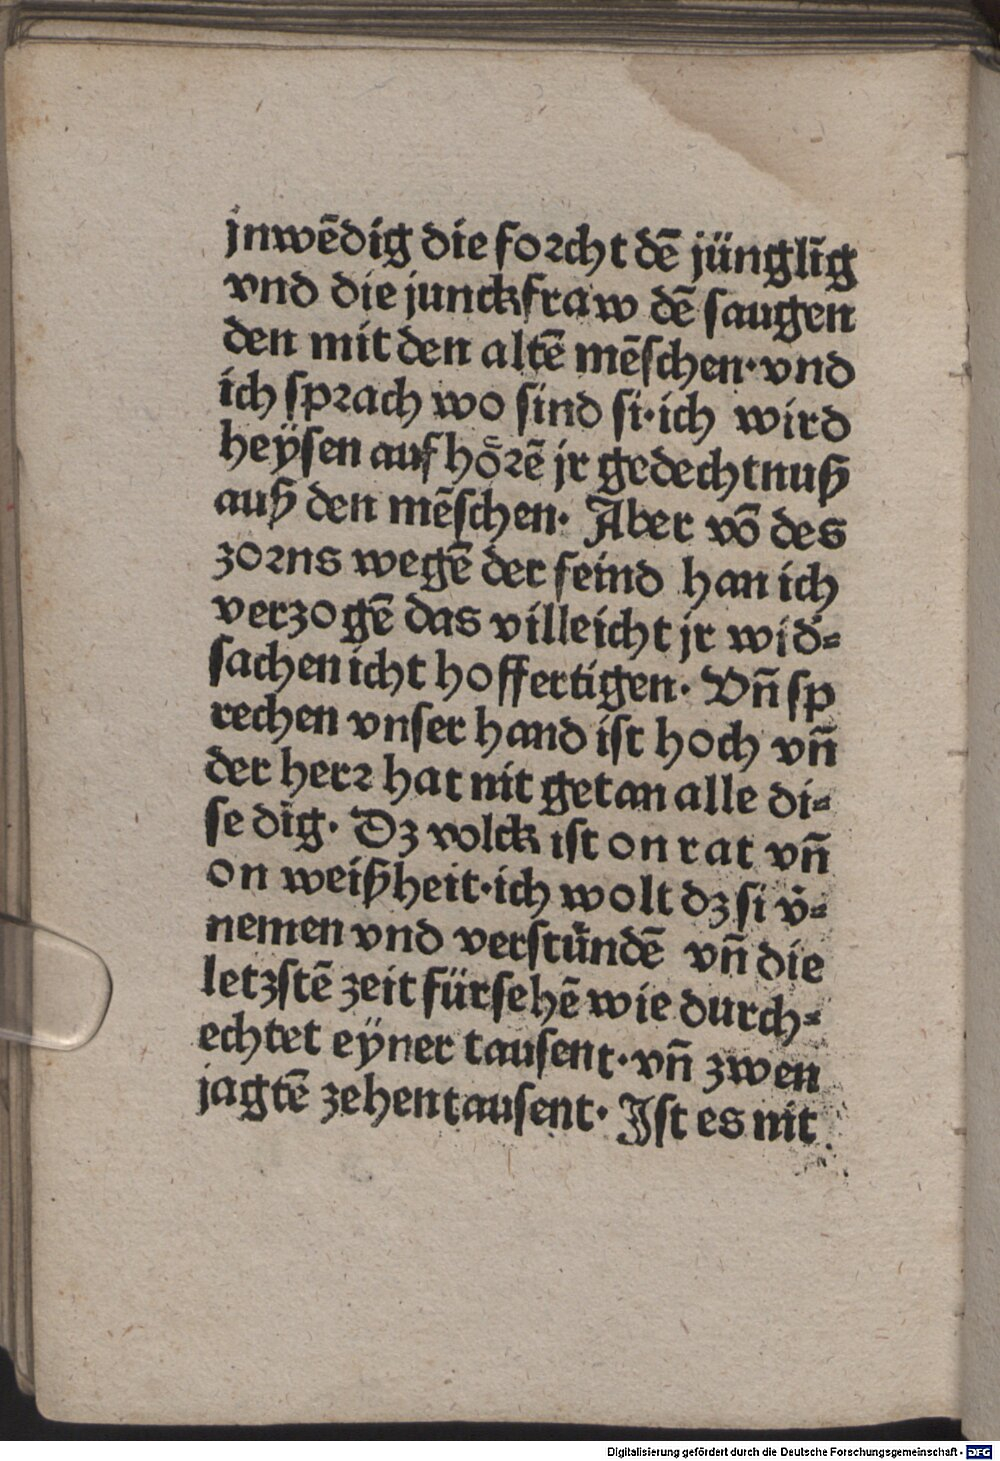 jnwēdig die forcht dē jünglīg
vnd die junckfraw dē saugen
den mit den altē mēschen·vnd
ich sprach wo sind si·ich wird
heÿsen aufhörē jr gedechtnuß
auß den mēschen· Aber vō des
zorns wegē der feind han ich
verzogē das villeicht jr wid̄⸗
sachen icht hoffertigen· Vn̄ sp
rechen vnser hand ist hoch vn̄
der herr hat nit getan alle di⸗
se dīg· Dz volck ist on rat vn̄
on weißheit·ich wolt dz si v̄⸗
nemen vnd verstündē vn̄ die
letzstē zeit fürsehē wie durch⸗
echtet eÿner tausent·vn̄ zwen
jagtē zehentausent· Ist es nit
Digitalisierung gefördert durch die Deutsche Forschungsgemeinschaft - DFG